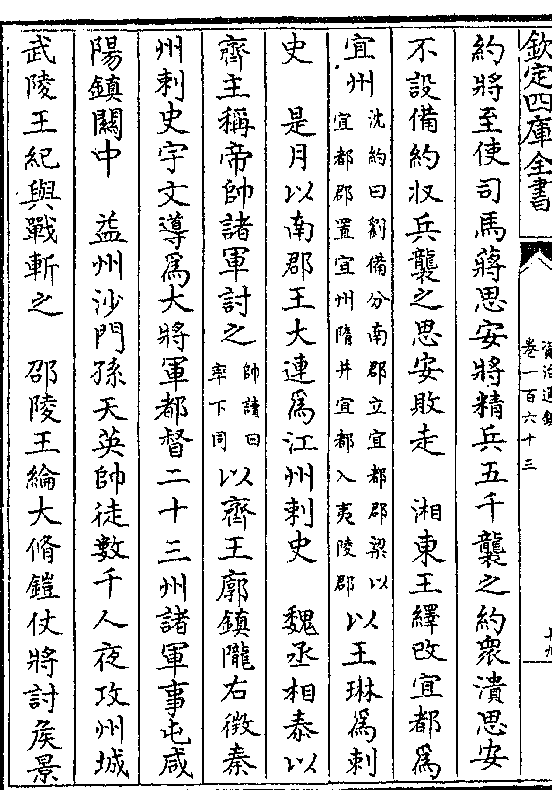 欽定四庫全書
資治通鑑
卷一百六十三
約將至使司馬蔣思安將精兵五千襲之約衆潰思安
不設備約收兵襲之思安敗走　湘東王繹改宜都爲
宜州
沈約曰劉備分南郡立宜都郡梁以
宜都郡置宜州隋并宜都入夷陵郡
以王琳爲刺
史　是月以南郡王大連爲江州刺史　魏丞相泰以
齊主稱帝帥諸軍討之
帥讀曰
率下同
以齊王廓鎮隴右徴秦
州刺史宇文導爲大將軍都督二十三州諸軍事屯咸
陽鎮關中　益州沙門孫天英帥徒數千人夜攻州城
武陵王紀與戰斬之　邵陵王綸大脩鎧仗將討侯景